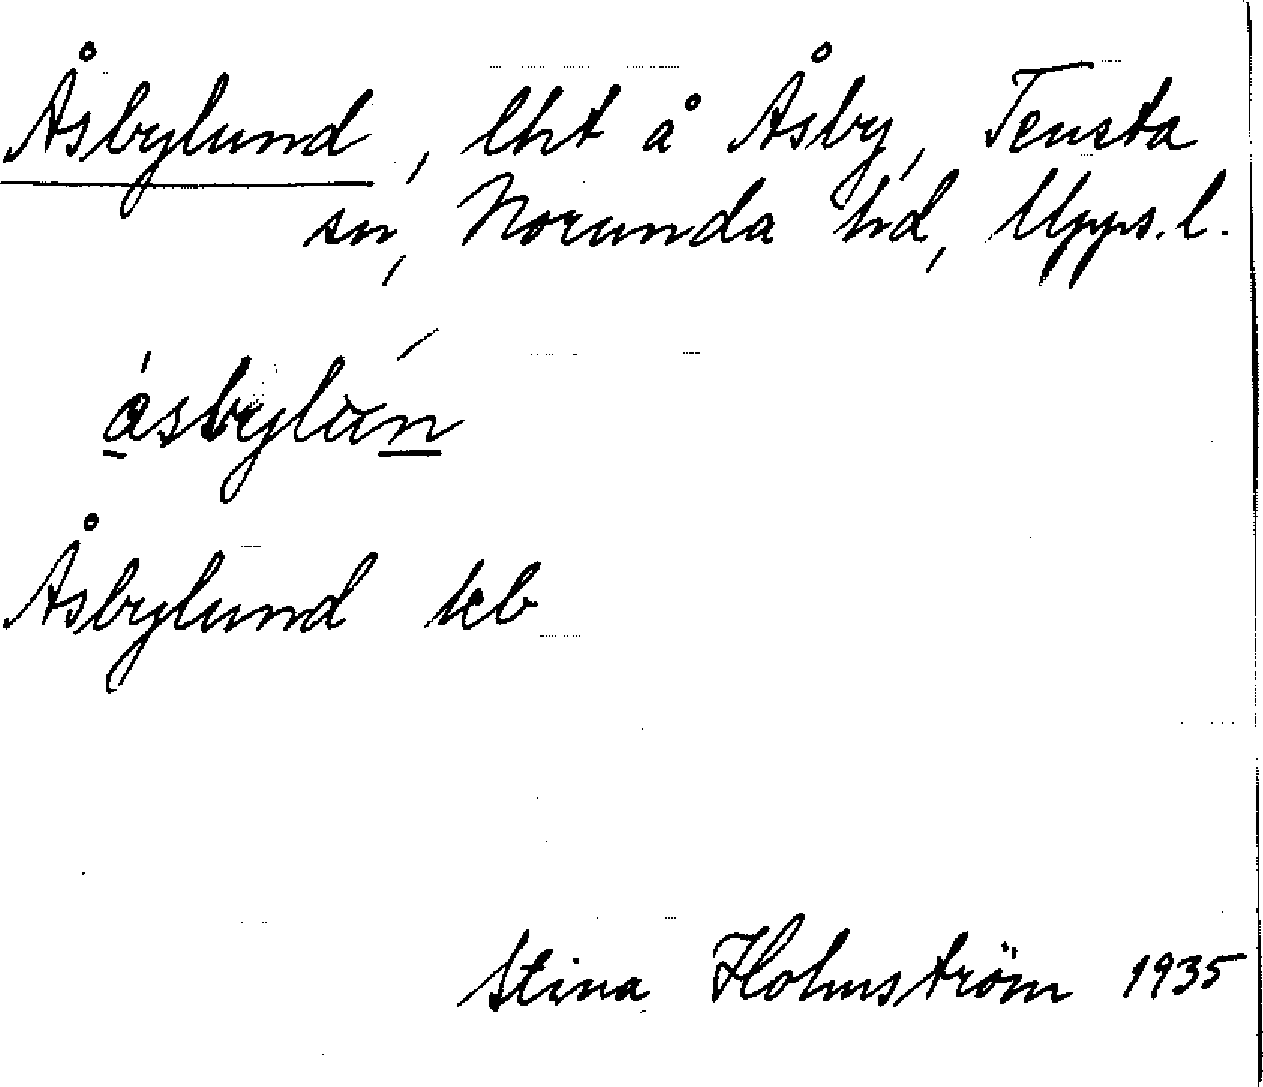 Åsbylund, lht å Åsby, Tensta
sn, Norunda hd, Upps. l.
åsbylun
Åsbylund kb
Stina Holmström 1935